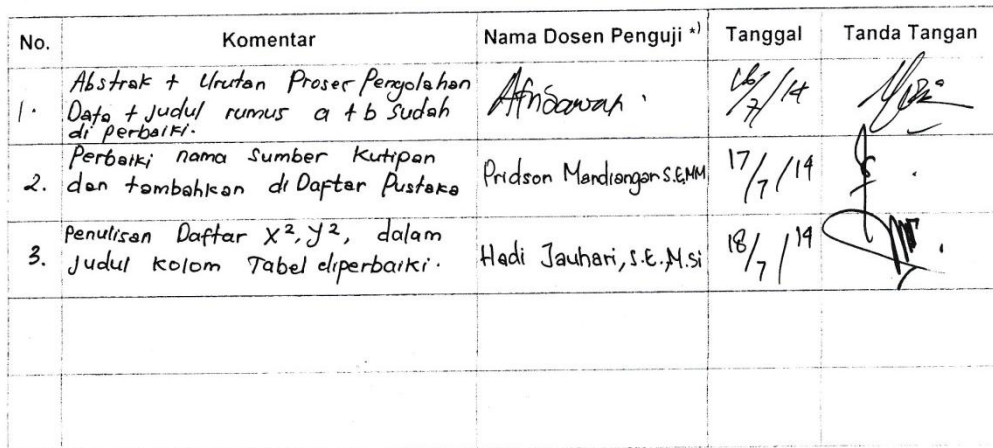 No. Komentar Nama Dosen Penguji *) Tanggal Tanda Tangan
Abstrak + Urutan Proser Pengolahan
1. Data + Judul rumus a + b Sudah Afrisawan 16/7/14
di perbaiki.
Perbaiki nama Sumber Kutipan
2. dan tambahkan di Daftar Pustaka Pridson Mandiangan S.E,MM 17/7/14
Penulisan Daftar X², Y², dalam
3. Judul Kolom Tabel diperbaiki. Hadi Jauhari, S.E.,M.si 18/7/14